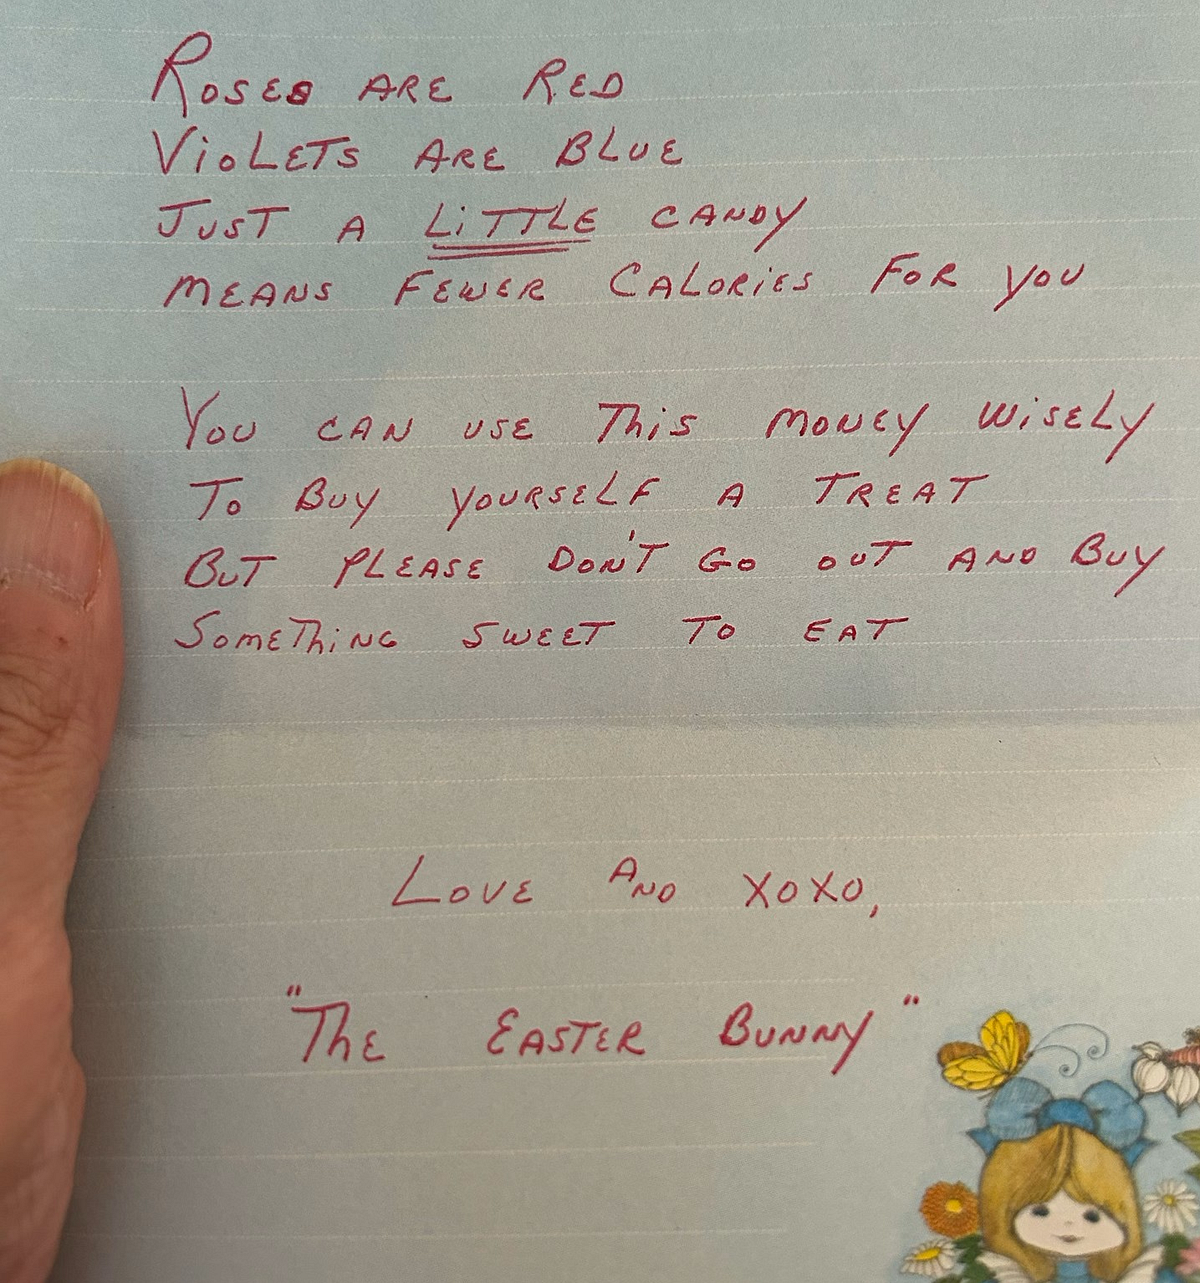 Roses ARE RED
VioLETS ARE BLUE
JUST A LiTTLE CANDY
MEANS FEWER CALORiES FOR YOU
YOU CAN USE This MONEY WiSELY
To Buy YOURSELF A TREAT
BUT PLEASE DON'T GO OUT AND BUY
SOMEThiNG SWEET TO EAT
LOVE AND XOXO,
"ThE EASTER BUNNY"